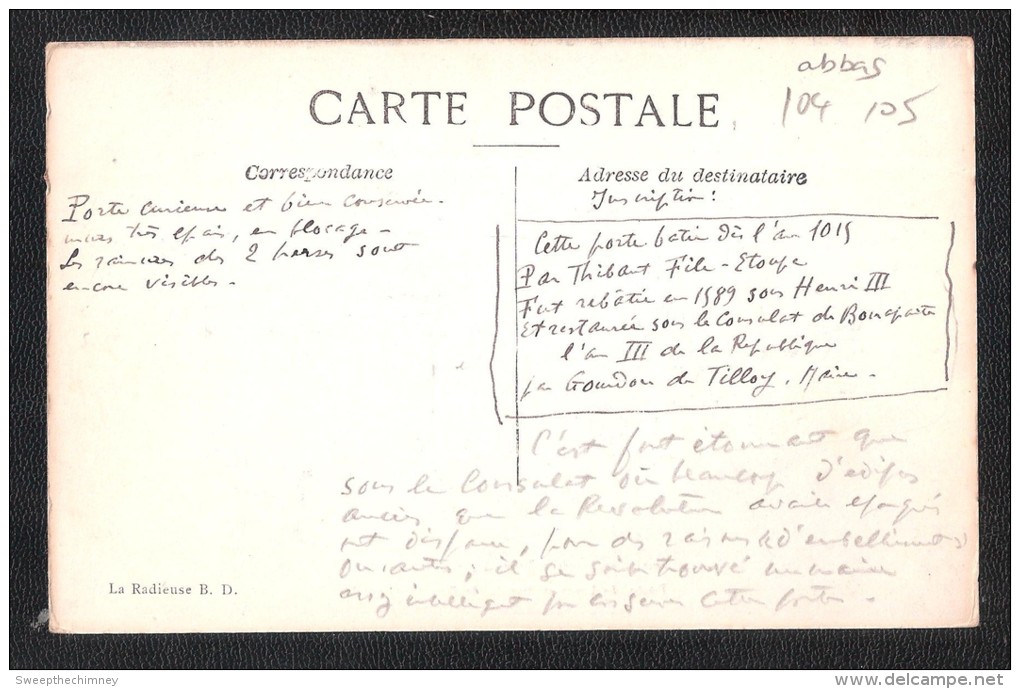 abbas
104 105
CARTE POSTALE
Correspondance
Porte curieuse et bien conservée.
murs très épais, en blocage -
Les rainures des 2 herses sont
encore visibles.
Adresse du destinataire
Inscription :
Cette porte batie dès l'an 1015
Par Thibaut File-Etoupe
Fut rebâtie en 1589 sous Henri III
Et restaurée sous le Consulat de Bonaparte
l'an III de la République
par Gourdon du Tilloy, Maire.
C'est fort étonnant que
sous le Consulat où beaucoup d'édifices
anciens que la Révolution avait épargnés
ont disparu, pour des raisons d'embellissements
ou autres, il se soit trouvé un maire
assez intelligent pour conserver cette porte.
La Radieuse B. D.
Sweepthechimney
delcampe.net